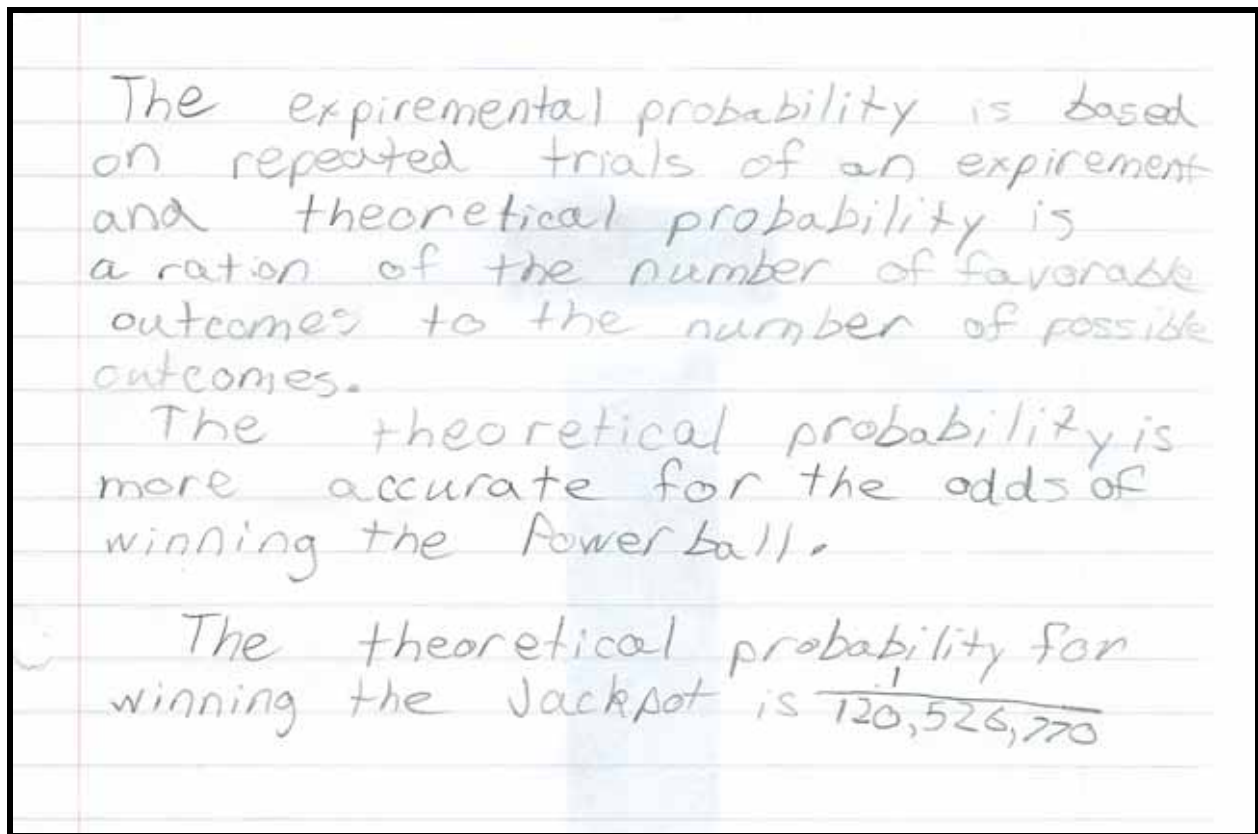 The expiremental probability is based
on repeated trials of an expirement
and theoretical probability is
a ration of the number of favorable
outcomes to the number of possible
outcomes.
The theoretical probability is
more accurate for the odds of
winning the Powerball.
The theoretical probability for
winning the Jackpot is 1/120,526,770